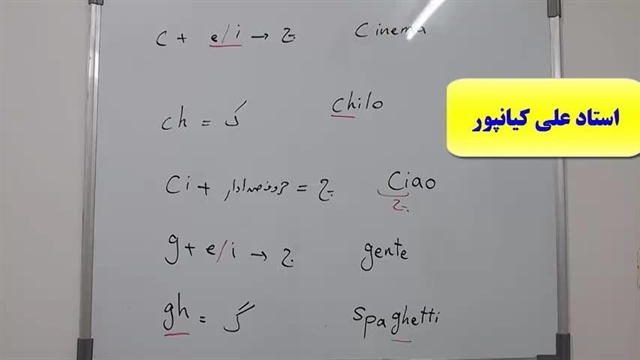 c + e/i → چ cinema
ch = ک chilo
استاد علی کیانپور
ci + حروف صدادار = چ ciao
چ
g + e/i → ج gente
gh = گ spaghetti